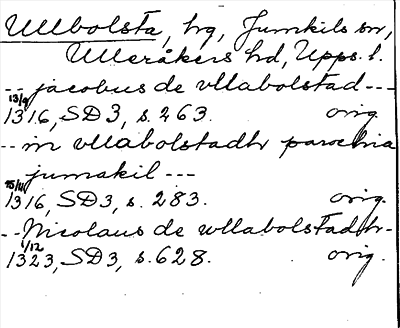 Ullbolsta, by, Jumkils sn,
Ulleråkers hd, Upps. l.
-- jacobus de vllabolstad ---
13/9 1316, SD 3, s. 263. orig.
-- in vllabolstadhr parochia
jumakil ---
15/11 1316, SD 3, s. 283. orig.
-- Nicolaus de wllabolstadhr -
1/12 1323, SD 3, s. 628. orig.